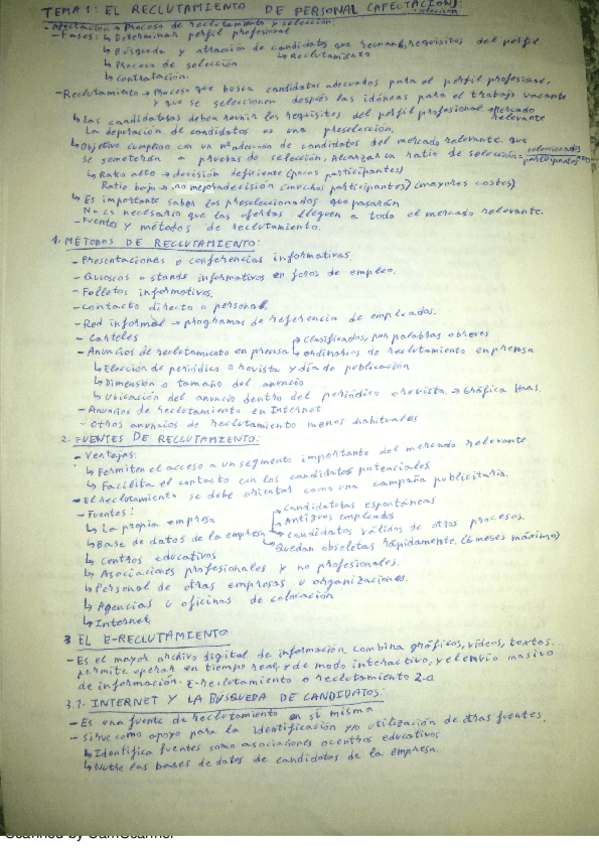 TEMA 1: EL RECLUTAMIENTO DE PERSONAL (AFECTACIÓN):
- Afectación → Proceso de reclutamiento y selección.
- Fases: ↳ Determinar perfil profesional
↳ Búsqueda y atracción de candidatos que reunan los requisitos del perfil
↳ Reclutamiento
↳ Proceso de selección
↳ Contratación.
- Reclutamiento → Proceso que busca candidatos adecuados para el perfil profesional,
y que se seleccionen después las idóneas para el trabajo vacante
↳ Las candidatas deben reunir los requisitos del perfil profesional → Mercado relevante
La depuración de candidatos es una preselección.
↳ Objetivo: cumplido con un nº adecuado de candidatos del mercado relevante que
se someterán a pruebas de selección. Alcanzar un ratio de selección = seleccionados / participantes
↳ Ratio alto → decisión deficiente (pocos participantes)
Ratio bajo → no mejora decisión (muchos participantes) (mayores costes)
↳ Es importante saber los preseleccionados que pasarán
No es necesario que las ofertas lleguen a todo el mercado relevante.
- Fuentes y métodos de reclutamiento.
1. MÉTODOS DE RECLUTAMIENTO:
- Presentaciones o conferencias informativas.
- Quioscos o stands informativos en foros de empleo.
- Folletos informativos.
- Contacto directo o personal
- Red informal → programas de referencia de empleados.
- Carteles
- Anuncios de reclutamiento en prensa ↱ Clasificados, por palabras o breves
↳ Ordinarios de reclutamiento en prensa
↳ Elección de periódico o revista y día de publicación
↳ Dimensión o tamaño del anuncio
↳ Ubicación del anuncio dentro del periódico o revista → Gráfica Haas.
- Anuncios de reclutamiento en Internet
- Otros anuncios de reclutamiento menos habituales
2. FUENTES DE RECLUTAMIENTO:
- Ventajas:
↳ Permiten el acceso a un segmento importante del mercado relevante
↳ Facilita el contacto con los candidatos potenciales
- El reclutamiento se debe orientar como una campaña publicitaria.
- Fuentes:
↳ La propia empresa
↳ Base de datos de la empresa → Candidaturas espontáneas
→ Antiguos empleados
→ Candidatos válidos de otros procesos.
→ Quedan obsoletas rápidamente. (6 meses máximo)
↳ Centros educativos
↳ Asociaciones profesionales y no profesionales.
↳ Personal de otras empresas u organizaciones.
↳ Agencias u oficinas de colocación
↳ Internet
3 EL E-RECLUTAMIENTO
- Es el mayor archivo digital de información, combina gráficos, vídeos, textos.
permite operar en tiempo real, y de modo interactivo, y el envío masivo
de información. E-reclutamiento o reclutamiento 2.0
3.1. INTERNET Y LA BÚSQUEDA DE CANDIDATOS:
- Es una fuente de reclutamiento en sí misma
- Sirve como apoyo para la identificación y/o utilización de otras fuentes.
↳ Identifica fuentes como asociaciones o centros educativos
↳ Nutre las bases de datos de candidatos de la empresa.
Scanned by CamScanner